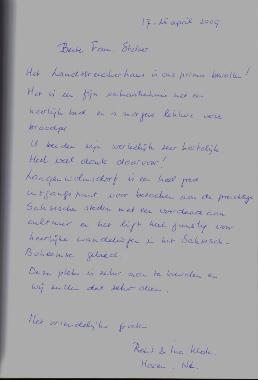 17-26 april 2009
Beste Fam.
Het Landstreicherhaus is ons prima bevallen!
Het is een fijn vakantiehuis met een
heerlijk bed en 's morgens lekkere verse
broodjes
U beiden zijn werkelijk zeer hartelijk
Heel veel dank daarvoor!
Langenwolmsdorf is een heel goed
uitgangspunt voor bezoeken aan de prachtige
Saksische steden met een voordeel aan
cultuur en het ligt heel gunstig voor
heerlijke wandelingen in het Saksisch-
Boheemse gebied.
Deze plek is zeker aan te bevelen en
wij zullen dat zeker doen.
Met vriendelijke groeten
& Ina